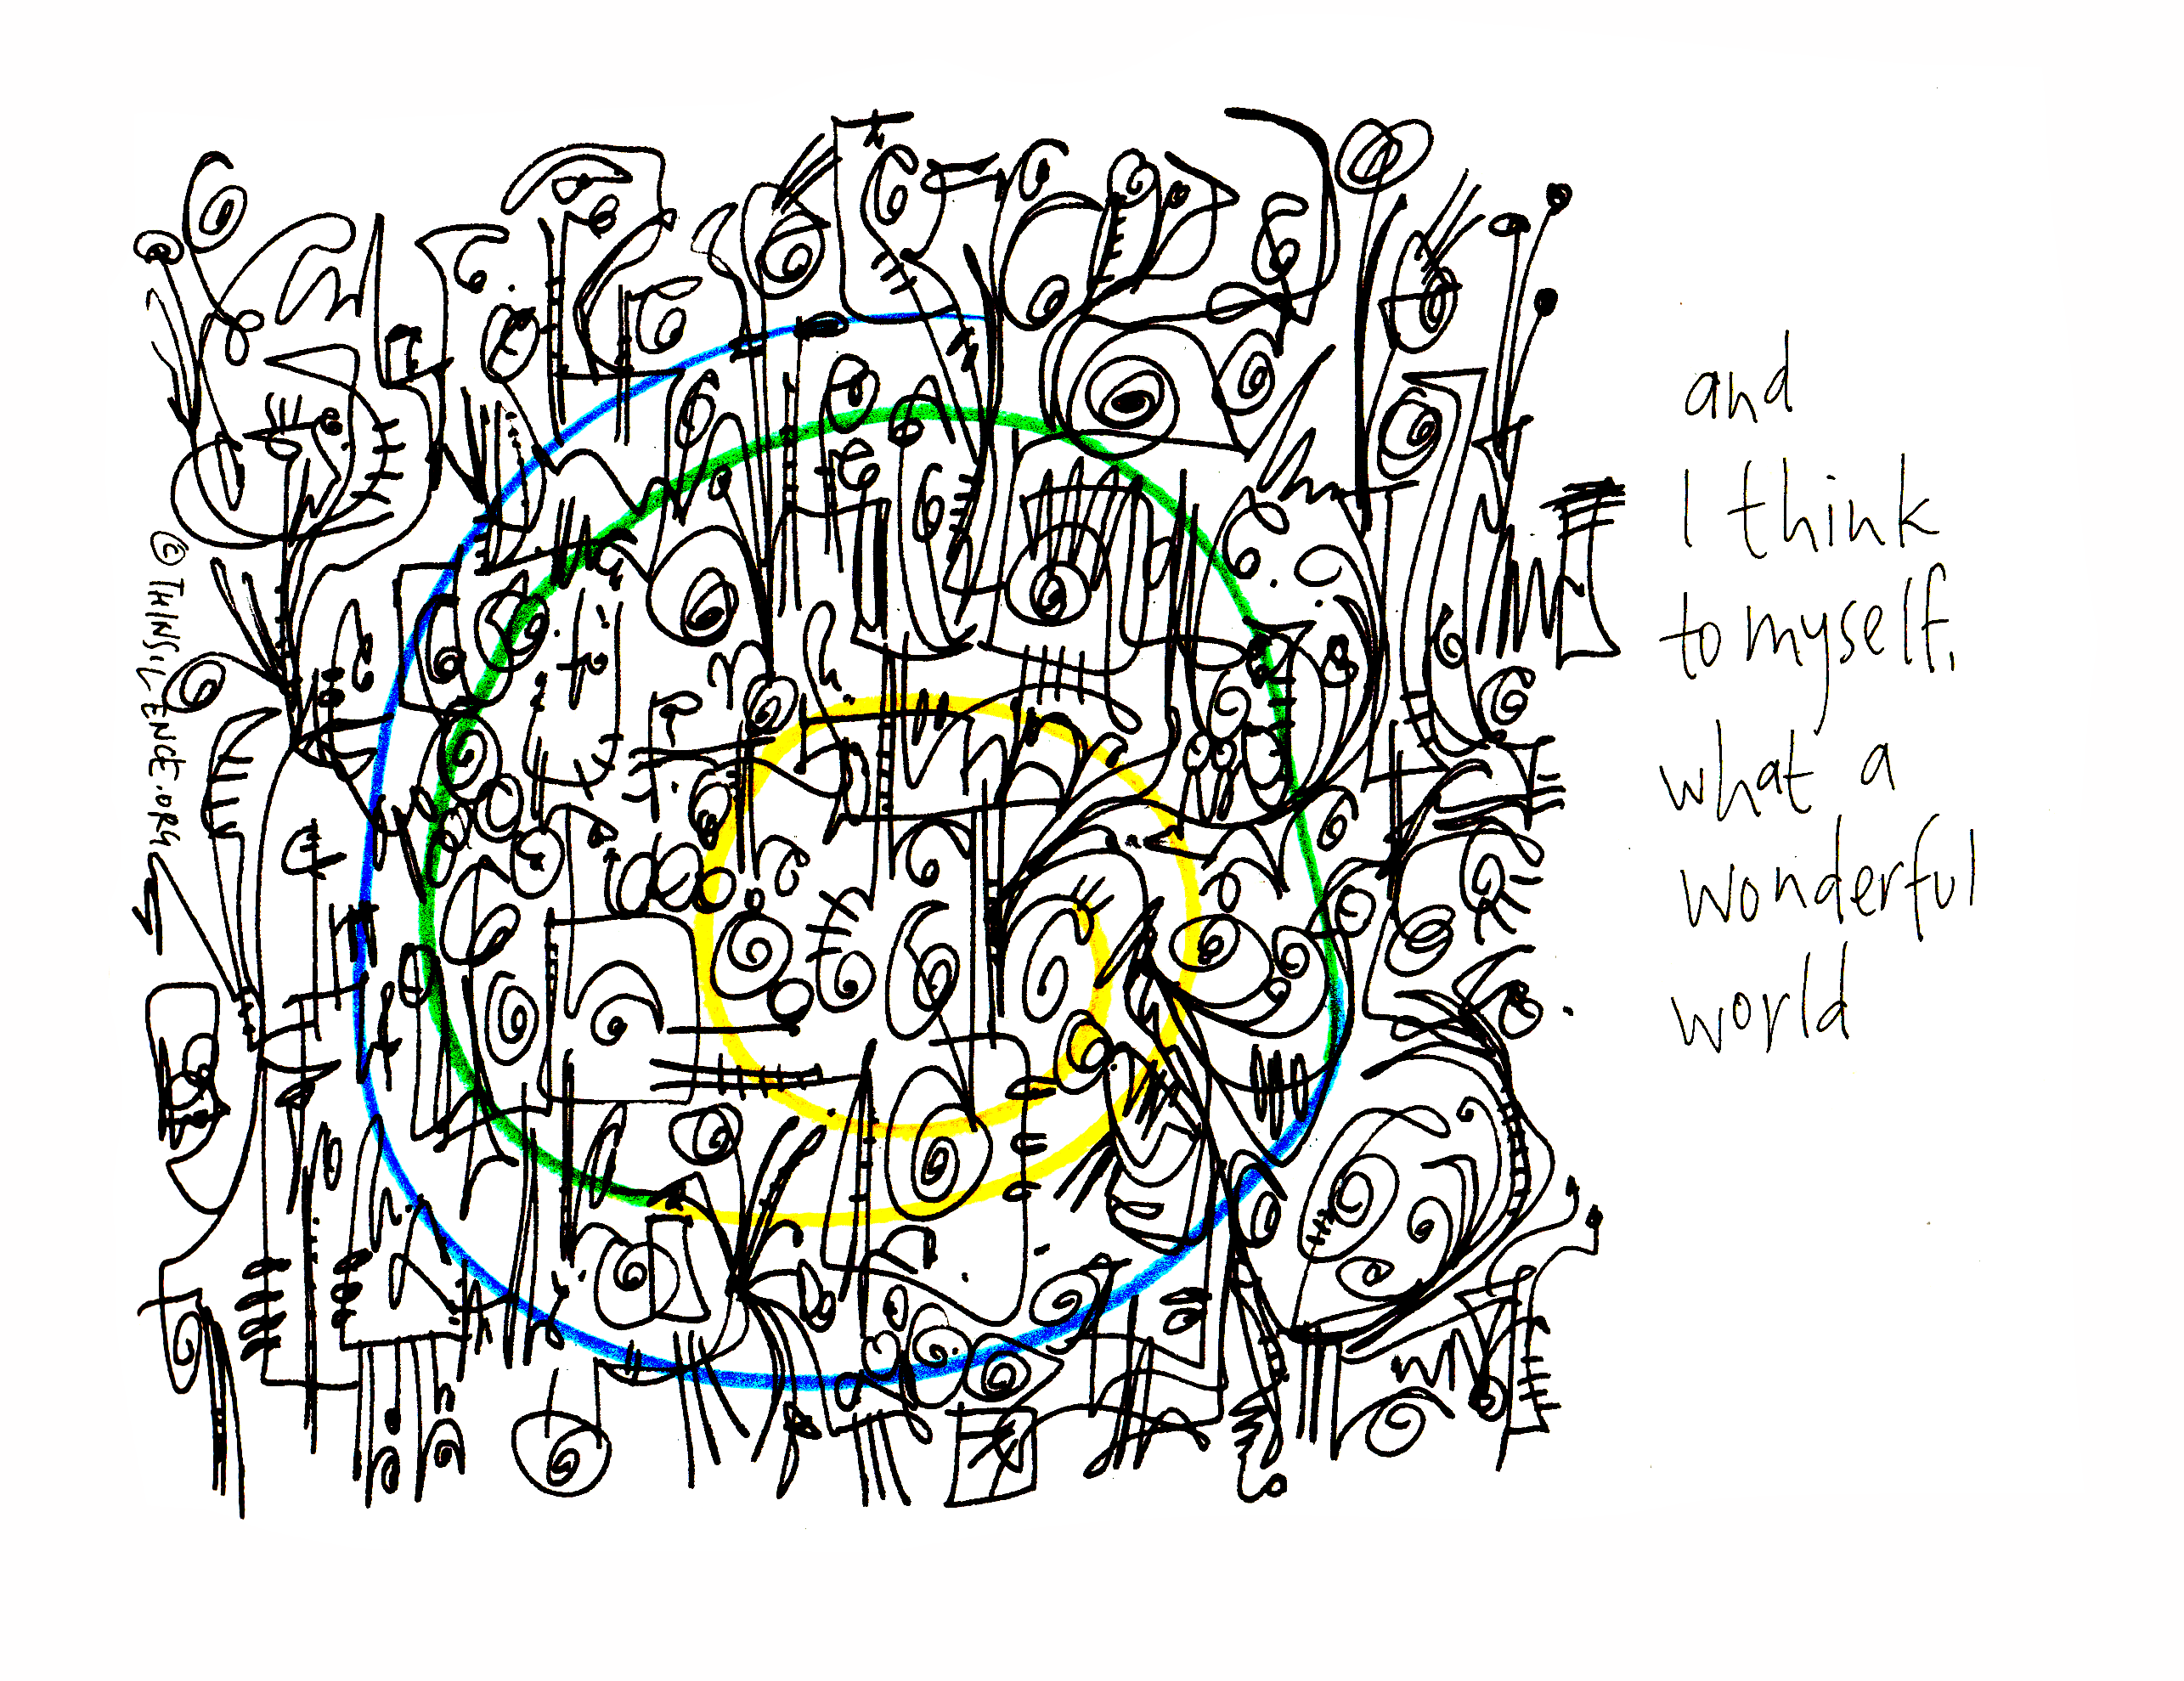 and
I think
to myself,
what a
wonderful
world
© THINSILENCE.ORG